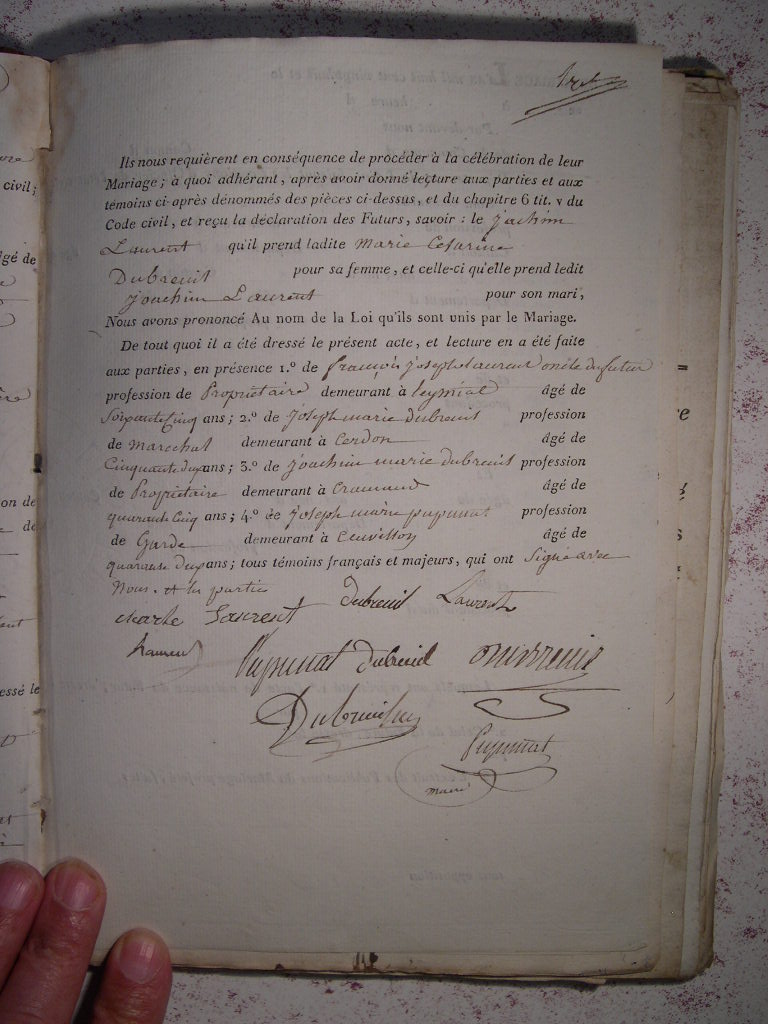 Ils nous requièrent en conséquence de procéder à la célébration de leur
Mariage ; à quoi adhérant, après avoir donné lecture aux parties et aux
témoins ci-après dénommés des pièces ci-dessus, et du chapitre 6 tit. v du
Code civil, et reçu la déclaration des Futurs, savoir : le joachim
Laurent qu'il prend ladite marie Cesarine
Dubreuil pour sa femme, et celle-ci qu'elle prend ledit
joachim Laurent pour son mari,
Nous avons prononcé Au nom de la Loi qu'ils sont unis par le Mariage.
De tout quoi il a été dressé le présent acte, et lecture en a été faite
aux parties, en présence 1.º de francois joseph laurent oncle du futur
profession de Propriétaire demeurant à leymiat âgé de
Soixante Cinq ans ; 2.º de joseph marie dubreuil profession
de marechal demeurant à Cerdon âgé de
Cinquante deux ans ; 3.º de joachim marie dubreuil profession
de Propriétaire demeurant à âgé de
quarante Cinq ans ; 4.º de joseph marie pupunat profession
de Garde demeurant à âgé de
quarante deux ans ; tous témoins français et majeurs, qui ont Signé avec
Nous. et les parties
Dubreuil Laurent
Laurent
Pupunat dubreuil
Pupunat
maire
civil ;
âgé de
on de
de
essé le